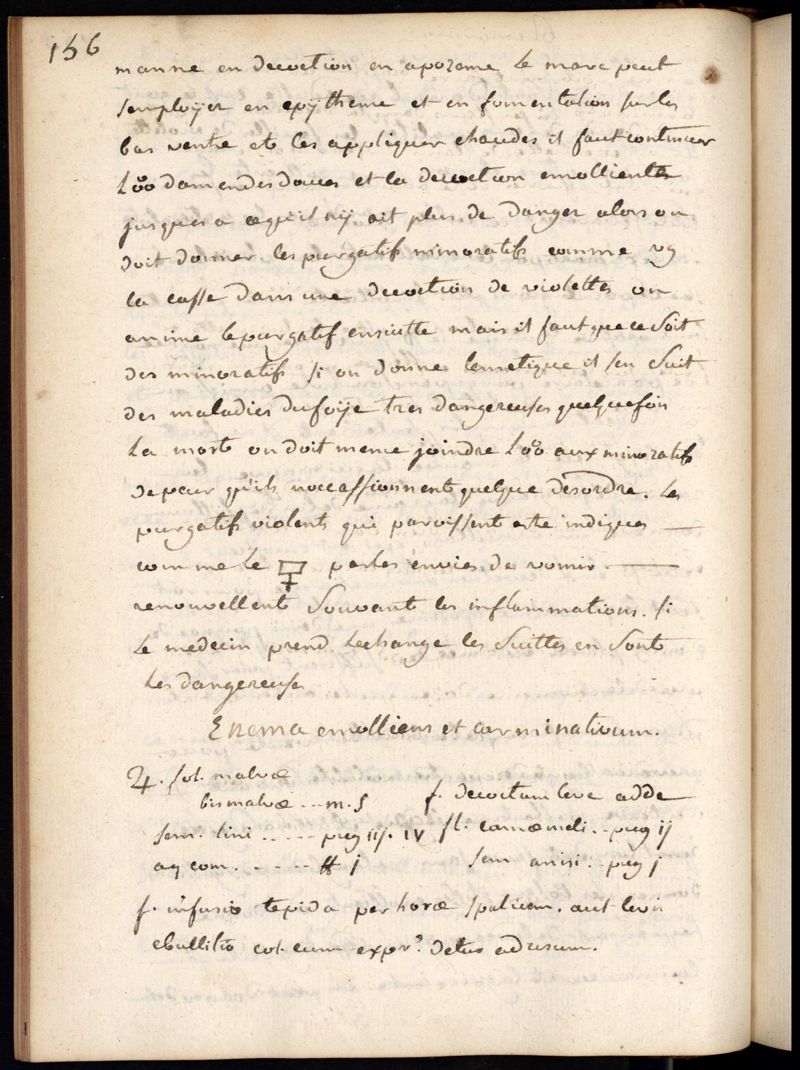 156
manne en decoction en apozeme le marc peut
semployer en epÿtheme et en fomentation sur les
bas ventre et les appliquer chaudes il faut continuer
damendes douces et la decoction emolliente
jusques a cequil nÿ ait plus de danger alors on
doit donner les purgatifs minoratifs comme
la casse dans une decoction de violettes on
anime le purgatif ensuitte mais il faut que ce soit
des minoratifs si on donne lemetique il sen suit
des maladies du foÿe tres dangereuses quelquefois
la mort on doit meme joindre aux minoratifs
de peur qu'ils noccassionnent quelque desordre. les
purgatifs violents qui paroissent etre indiques
comme le par les envies de vomir.
renouvellent souvant les inflammations. si
le medecin prend lechange les suittes en sont
les dangereuses
Enema emolliens et carminativum.
♃. fol. malvæ
bismalvæ -- m. s f. decoctum leve adde
sem. lini ---- pug iij. iv fl. camæmeli -- pug ij
aq com. ----- ℔ j sem anisi -- pug j
f. infusio tepida per horæ spatium. aut levis
ebullitio col. cum expr. detus ad usum.